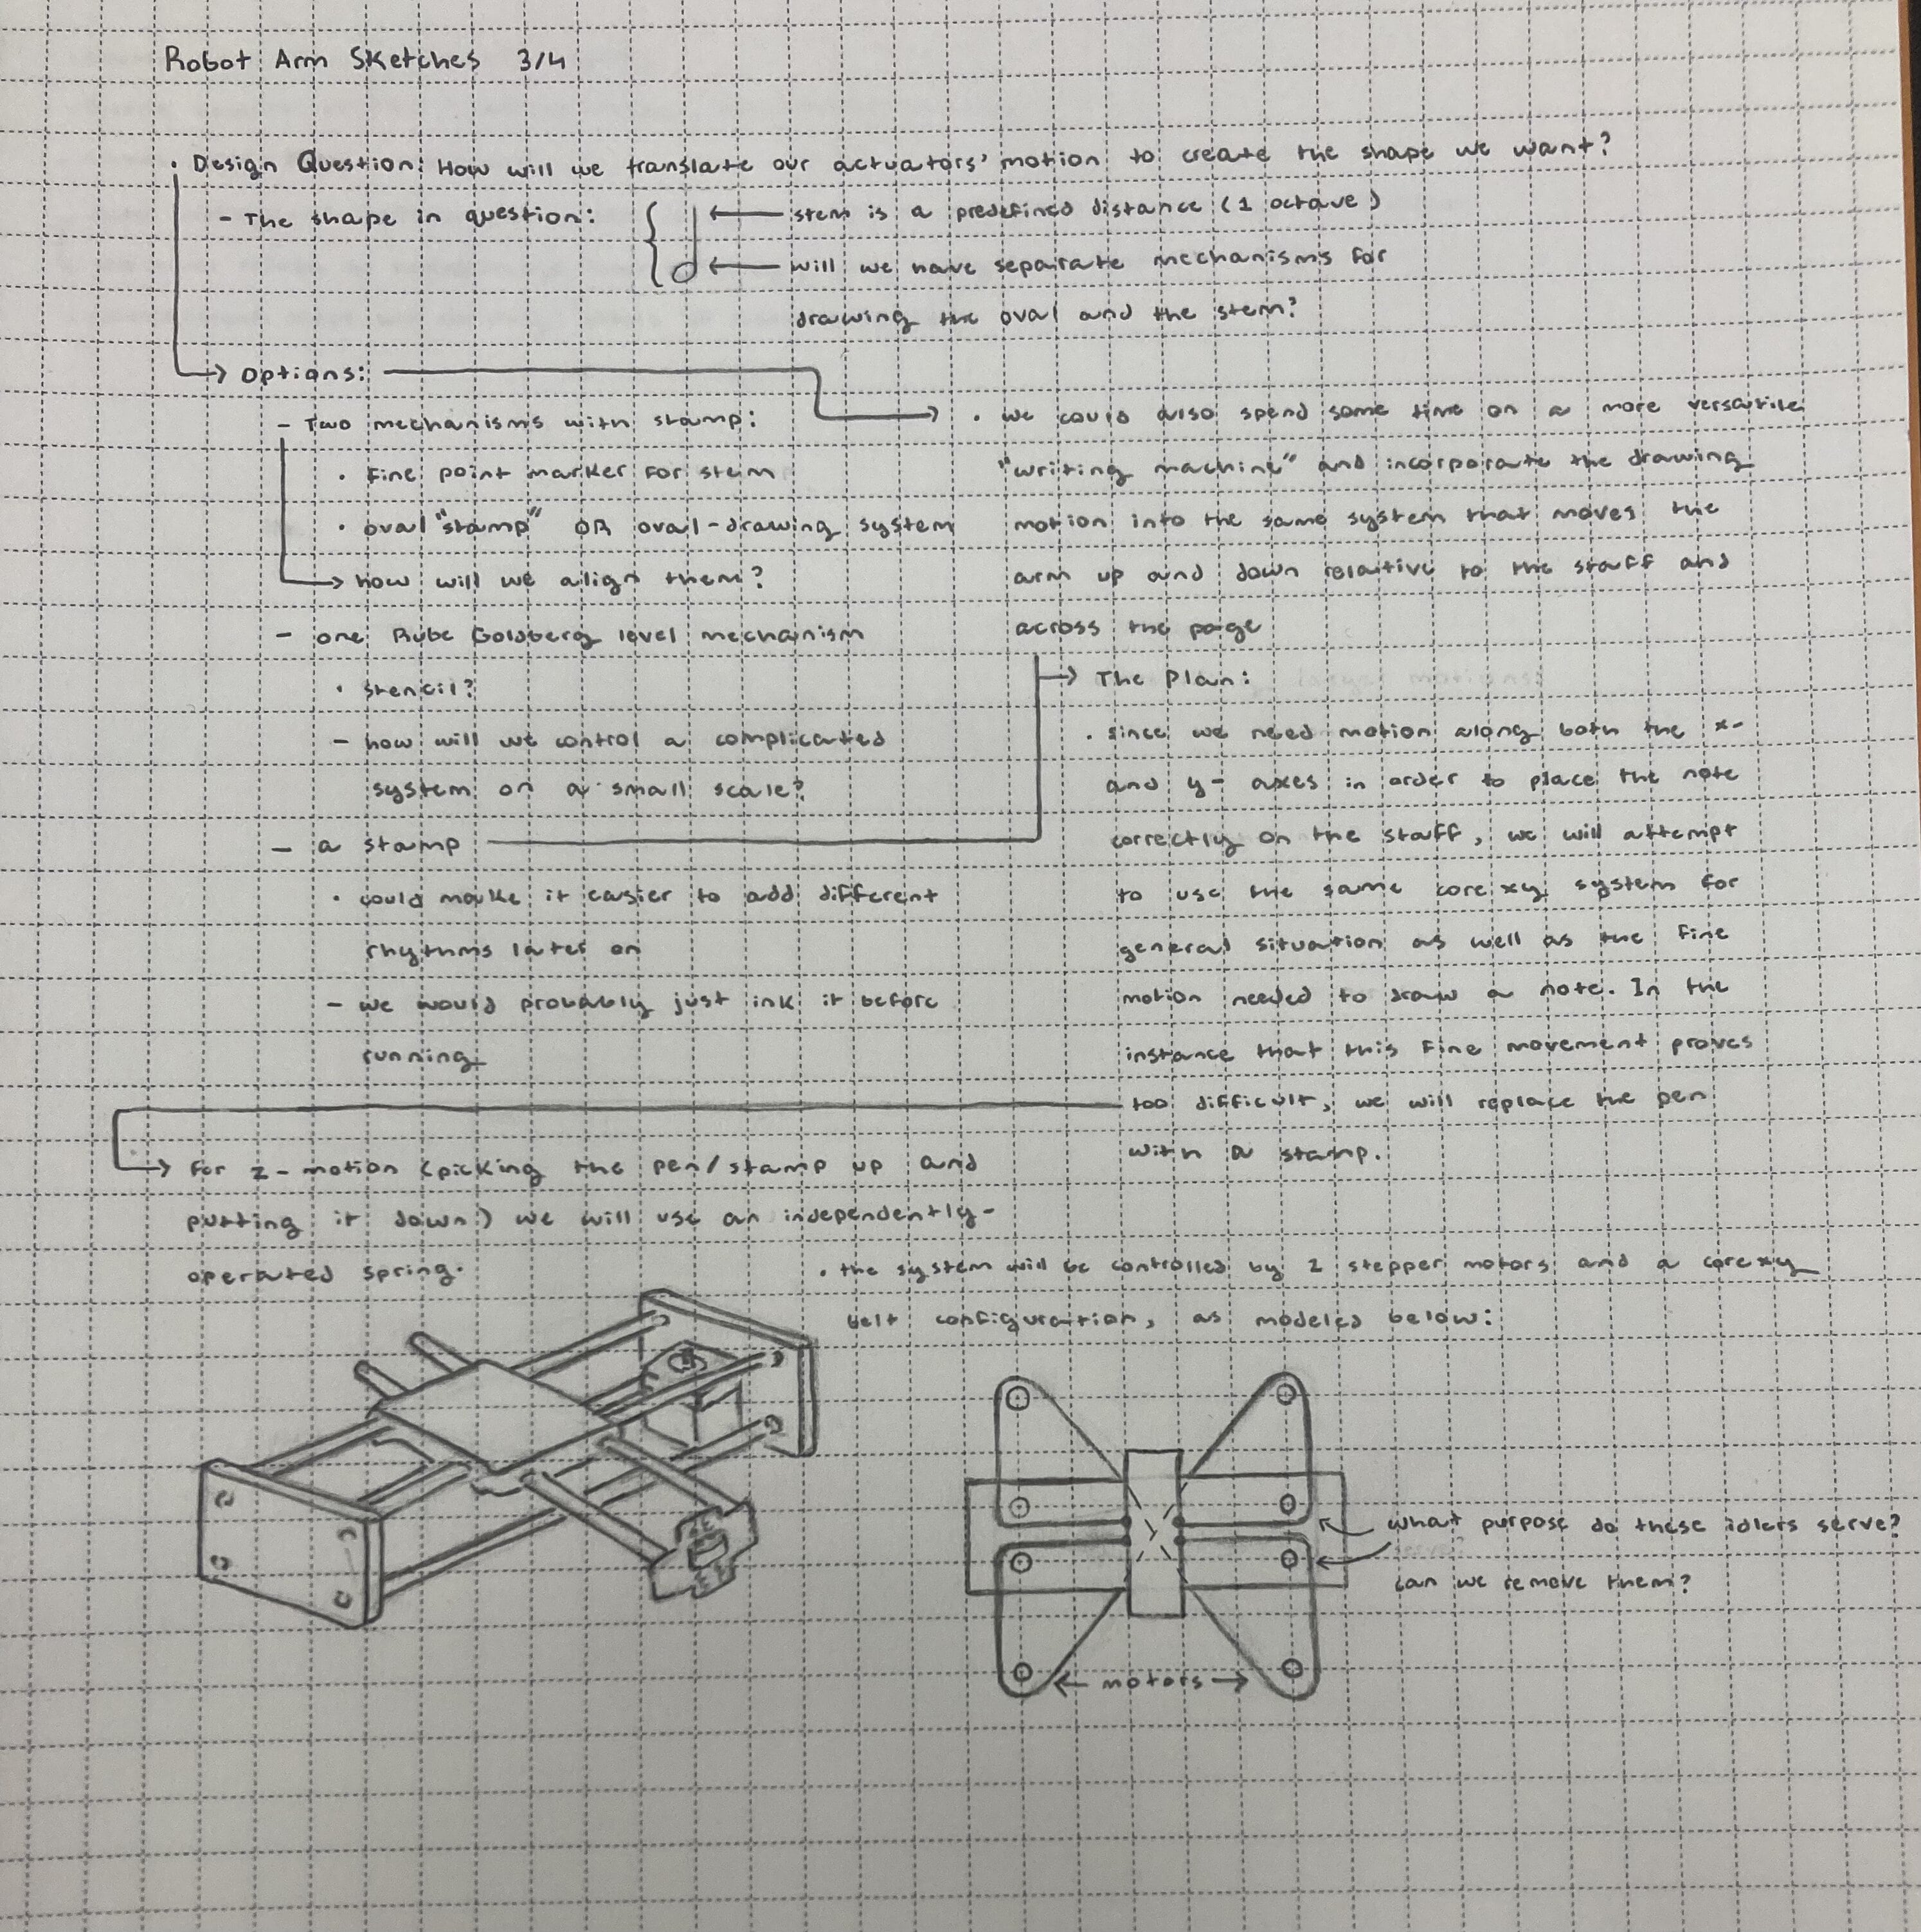 Robot Arm Sketches 3/4
• Design Question: How will we translate our actuators' motion to create the shape we want?
- The shape in question:
stem is a predefined distance (1 octave)
will we have separate mechanisms for
drawing the oval and the stem?
Options:
- Two mechanisms with stamp:
• fine point marker for stem
• oval "stamp" OR oval-drawing system
how will we align them?
- one Rube Goldberg level mechanism
• stencil?
- how will we control a complicated
system on a small scale?
- a stamp
• could make it easier to add different
rhythms later on
- we would probably just ink it before
running
• we could also spend some time on a more versatile
"writing machine" and incorporate the drawing
motion into the same system that moves the
arm up and down relative to the staff and
across the page
The Plan:
• since we need motion along both the x-
and y- axes in order to place the note
correctly on the staff, we will attempt
to use the same corexy system for
general situation as well as the fine
motion needed to draw a note. In the
instance that this fine movement proves
too difficult, we will replace the pen
with a stamp.
for z-motion (picking the pen/stamp up and
putting it down) we will use an independently-
operated spring.
• the system will be controlled by 2 stepper motors and a corexy
belt configuration, as modeled below:
What purpose do these idlers serve?
can we remove them?
motors